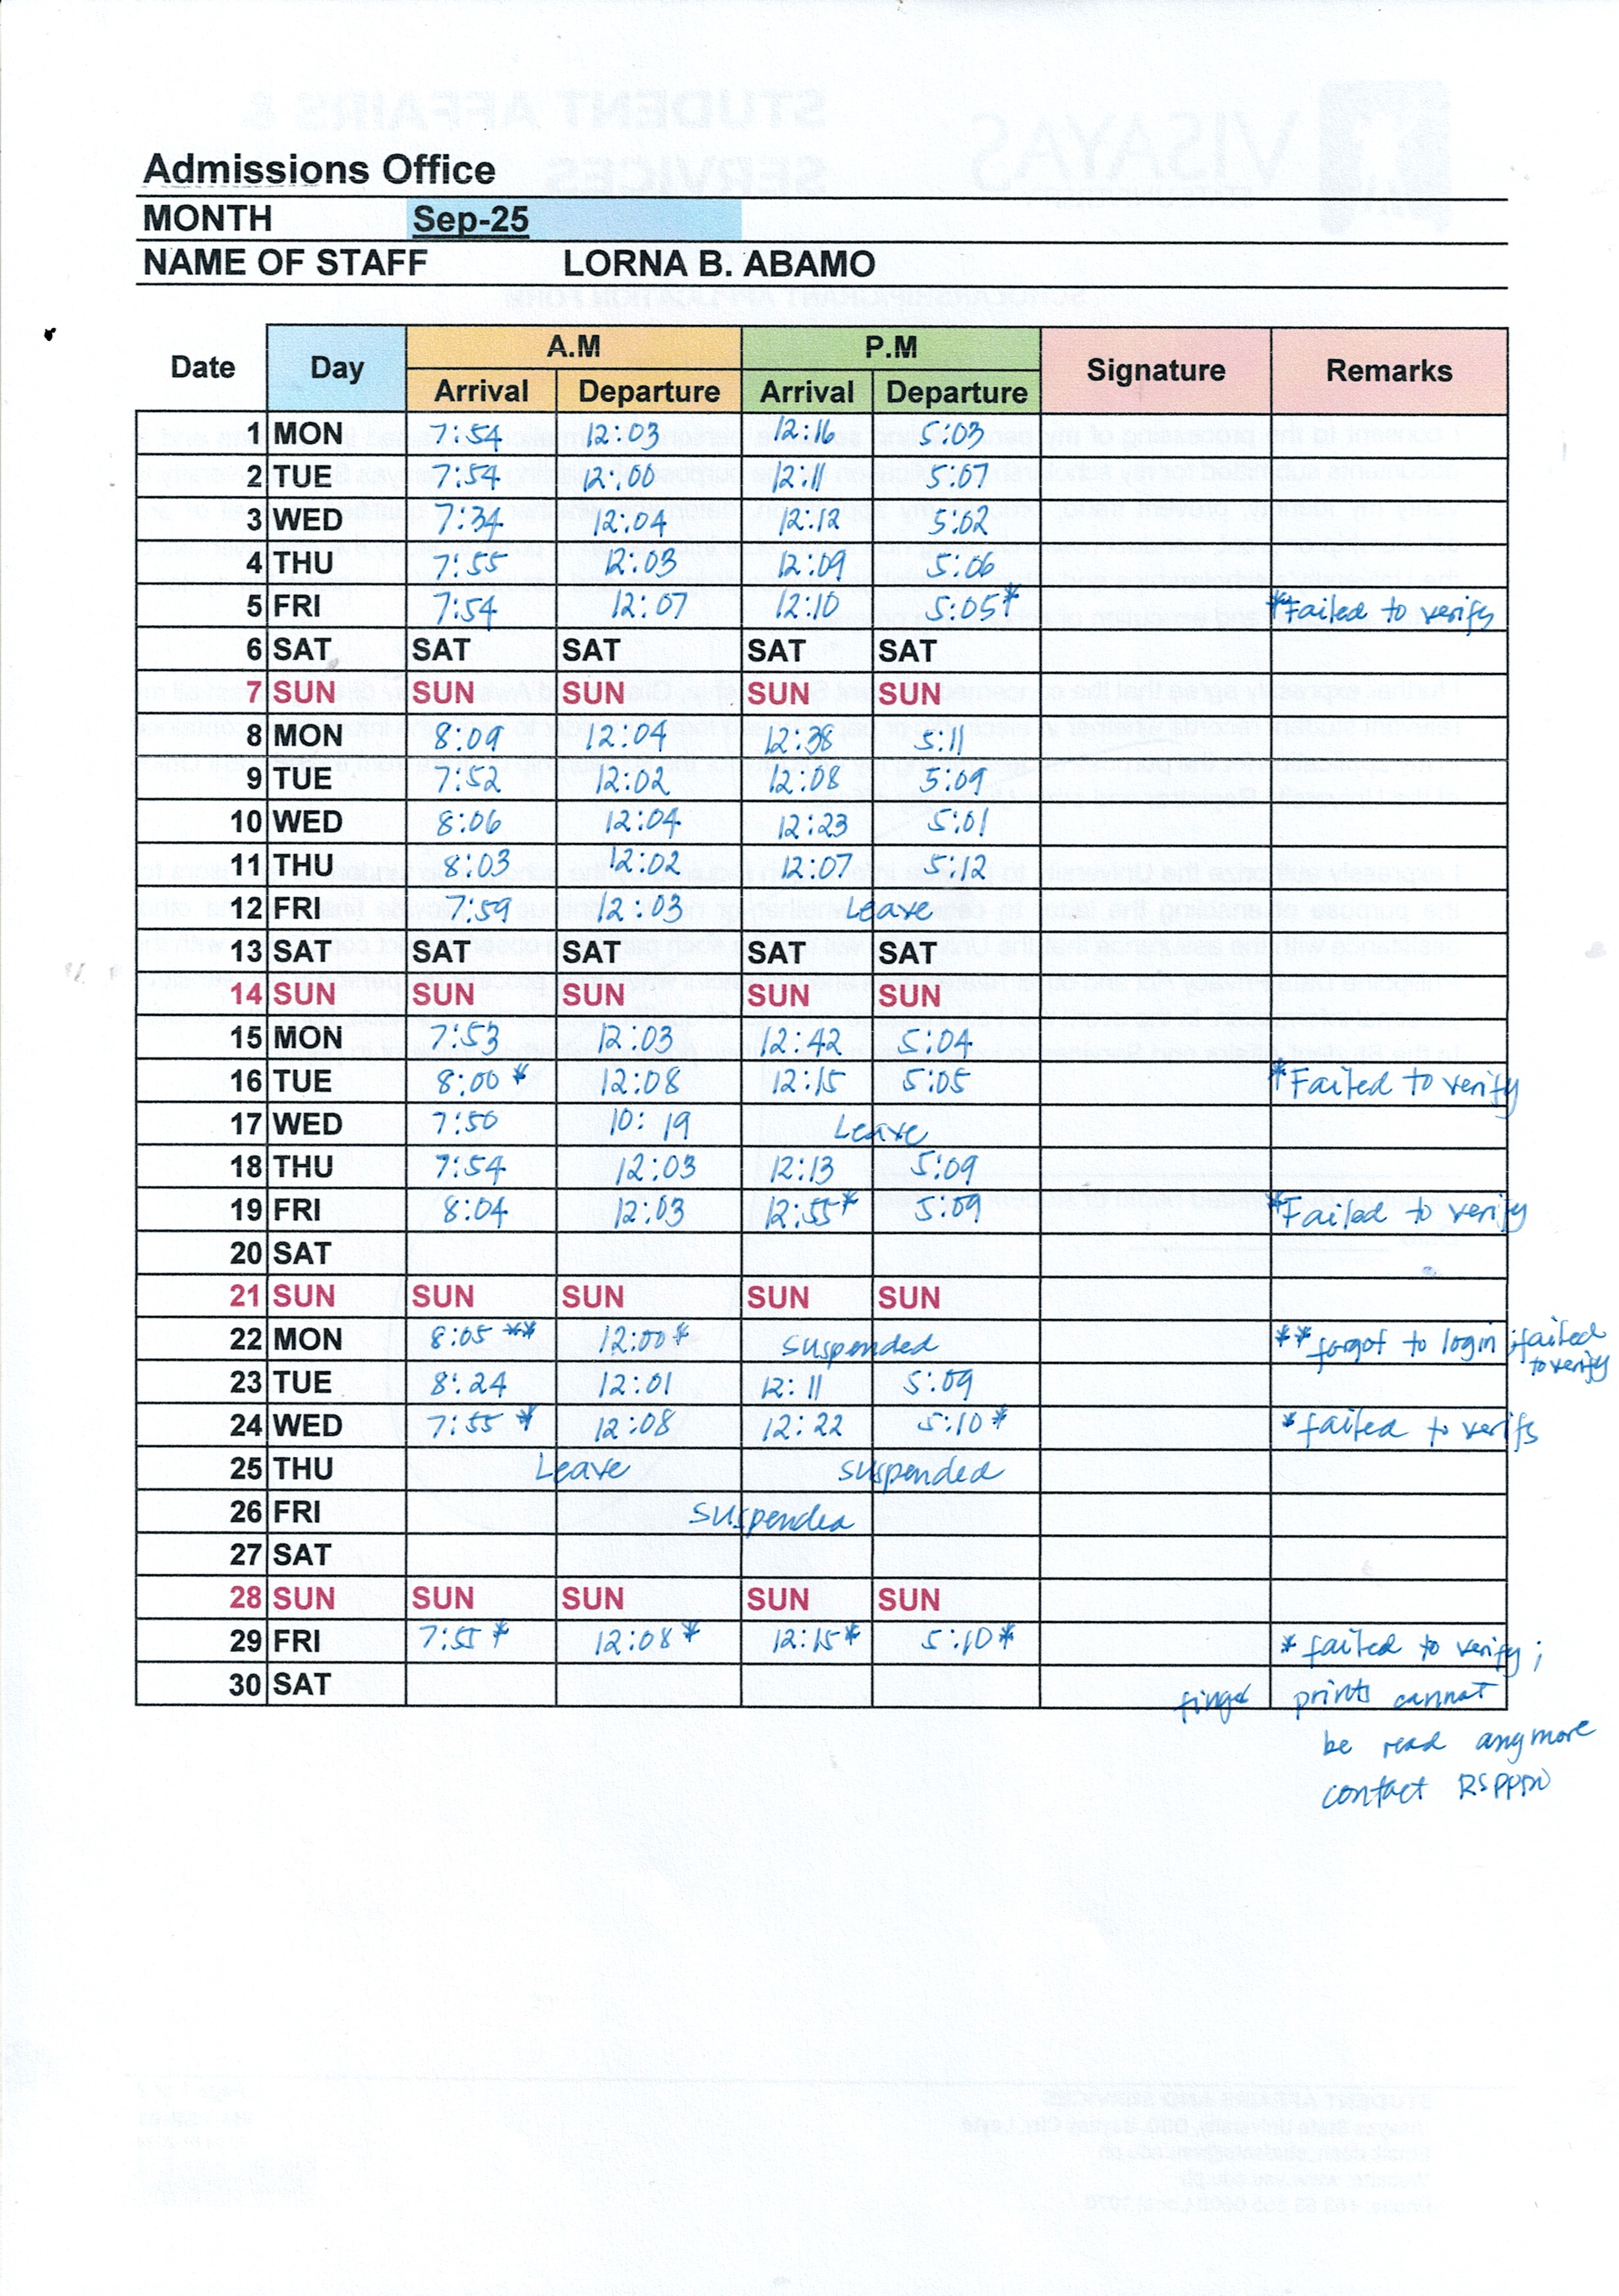 Admissions Office
MONTH Sep-25
NAME OF STAFF LORNA B. ABAMO
Date Day A.M P.M Signature Remarks
Arrival Departure Arrival Departure
1 MON 7:54 12:03 12:16 5:03
2 TUE 7:54 12:00 12:11 5:07
3 WED 7:34 12:04 12:12 5:02
4 THU 7:55 12:03 12:09 5:06
5 FRI 7:54 12:07 12:10 5:05* *Failed to verify
6 SAT SAT SAT SAT SAT
7 SUN SUN SUN SUN SUN
8 MON 8:09 12:04 12:38 5:11
9 TUE 7:52 12:02 12:08 5:09
10 WED 8:06 12:04 12:23 5:01
11 THU 8:03 12:02 12:07 5:12
12 FRI 7:59 12:03 Leave
13 SAT SAT SAT SAT SAT
14 SUN SUN SUN SUN SUN
15 MON 7:53 12:03 12:42 5:04
16 TUE 8:00 * 12:08 12:15 5:05 *Failed to verify
17 WED 7:50 10:19 Leave
18 THU 7:54 12:03 12:13 5:09
19 FRI 8:04 12:03 12:55* 5:09 *Failed to verify
20 SAT
21 SUN SUN SUN SUN SUN
22 MON 8:05 ** 12:00* suspended ** forgot to login ; failed
to verify
23 TUE 8:24 12:01 12:11 5:09
24 WED 7:55 * 12:08 12:22 5:10* * failed to verify
25 THU Leave suspended
26 FRI suspended
27 SAT
28 SUN SUN SUN SUN SUN
29 FRI 7:55 * 12:08* 12:15* 5:10* * failed to verify ;
30 SAT finger prints cannot
be read anymore
contact